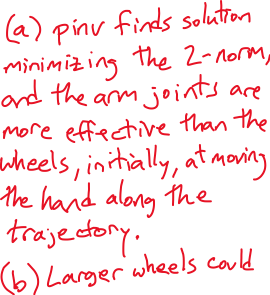 (a) pinv finds solution
minimizing the 2-norm,
and the arm joints are
more effective than the
wheels, initially, at moving
the hand along the
trajectory.
(b) Larger wheels could